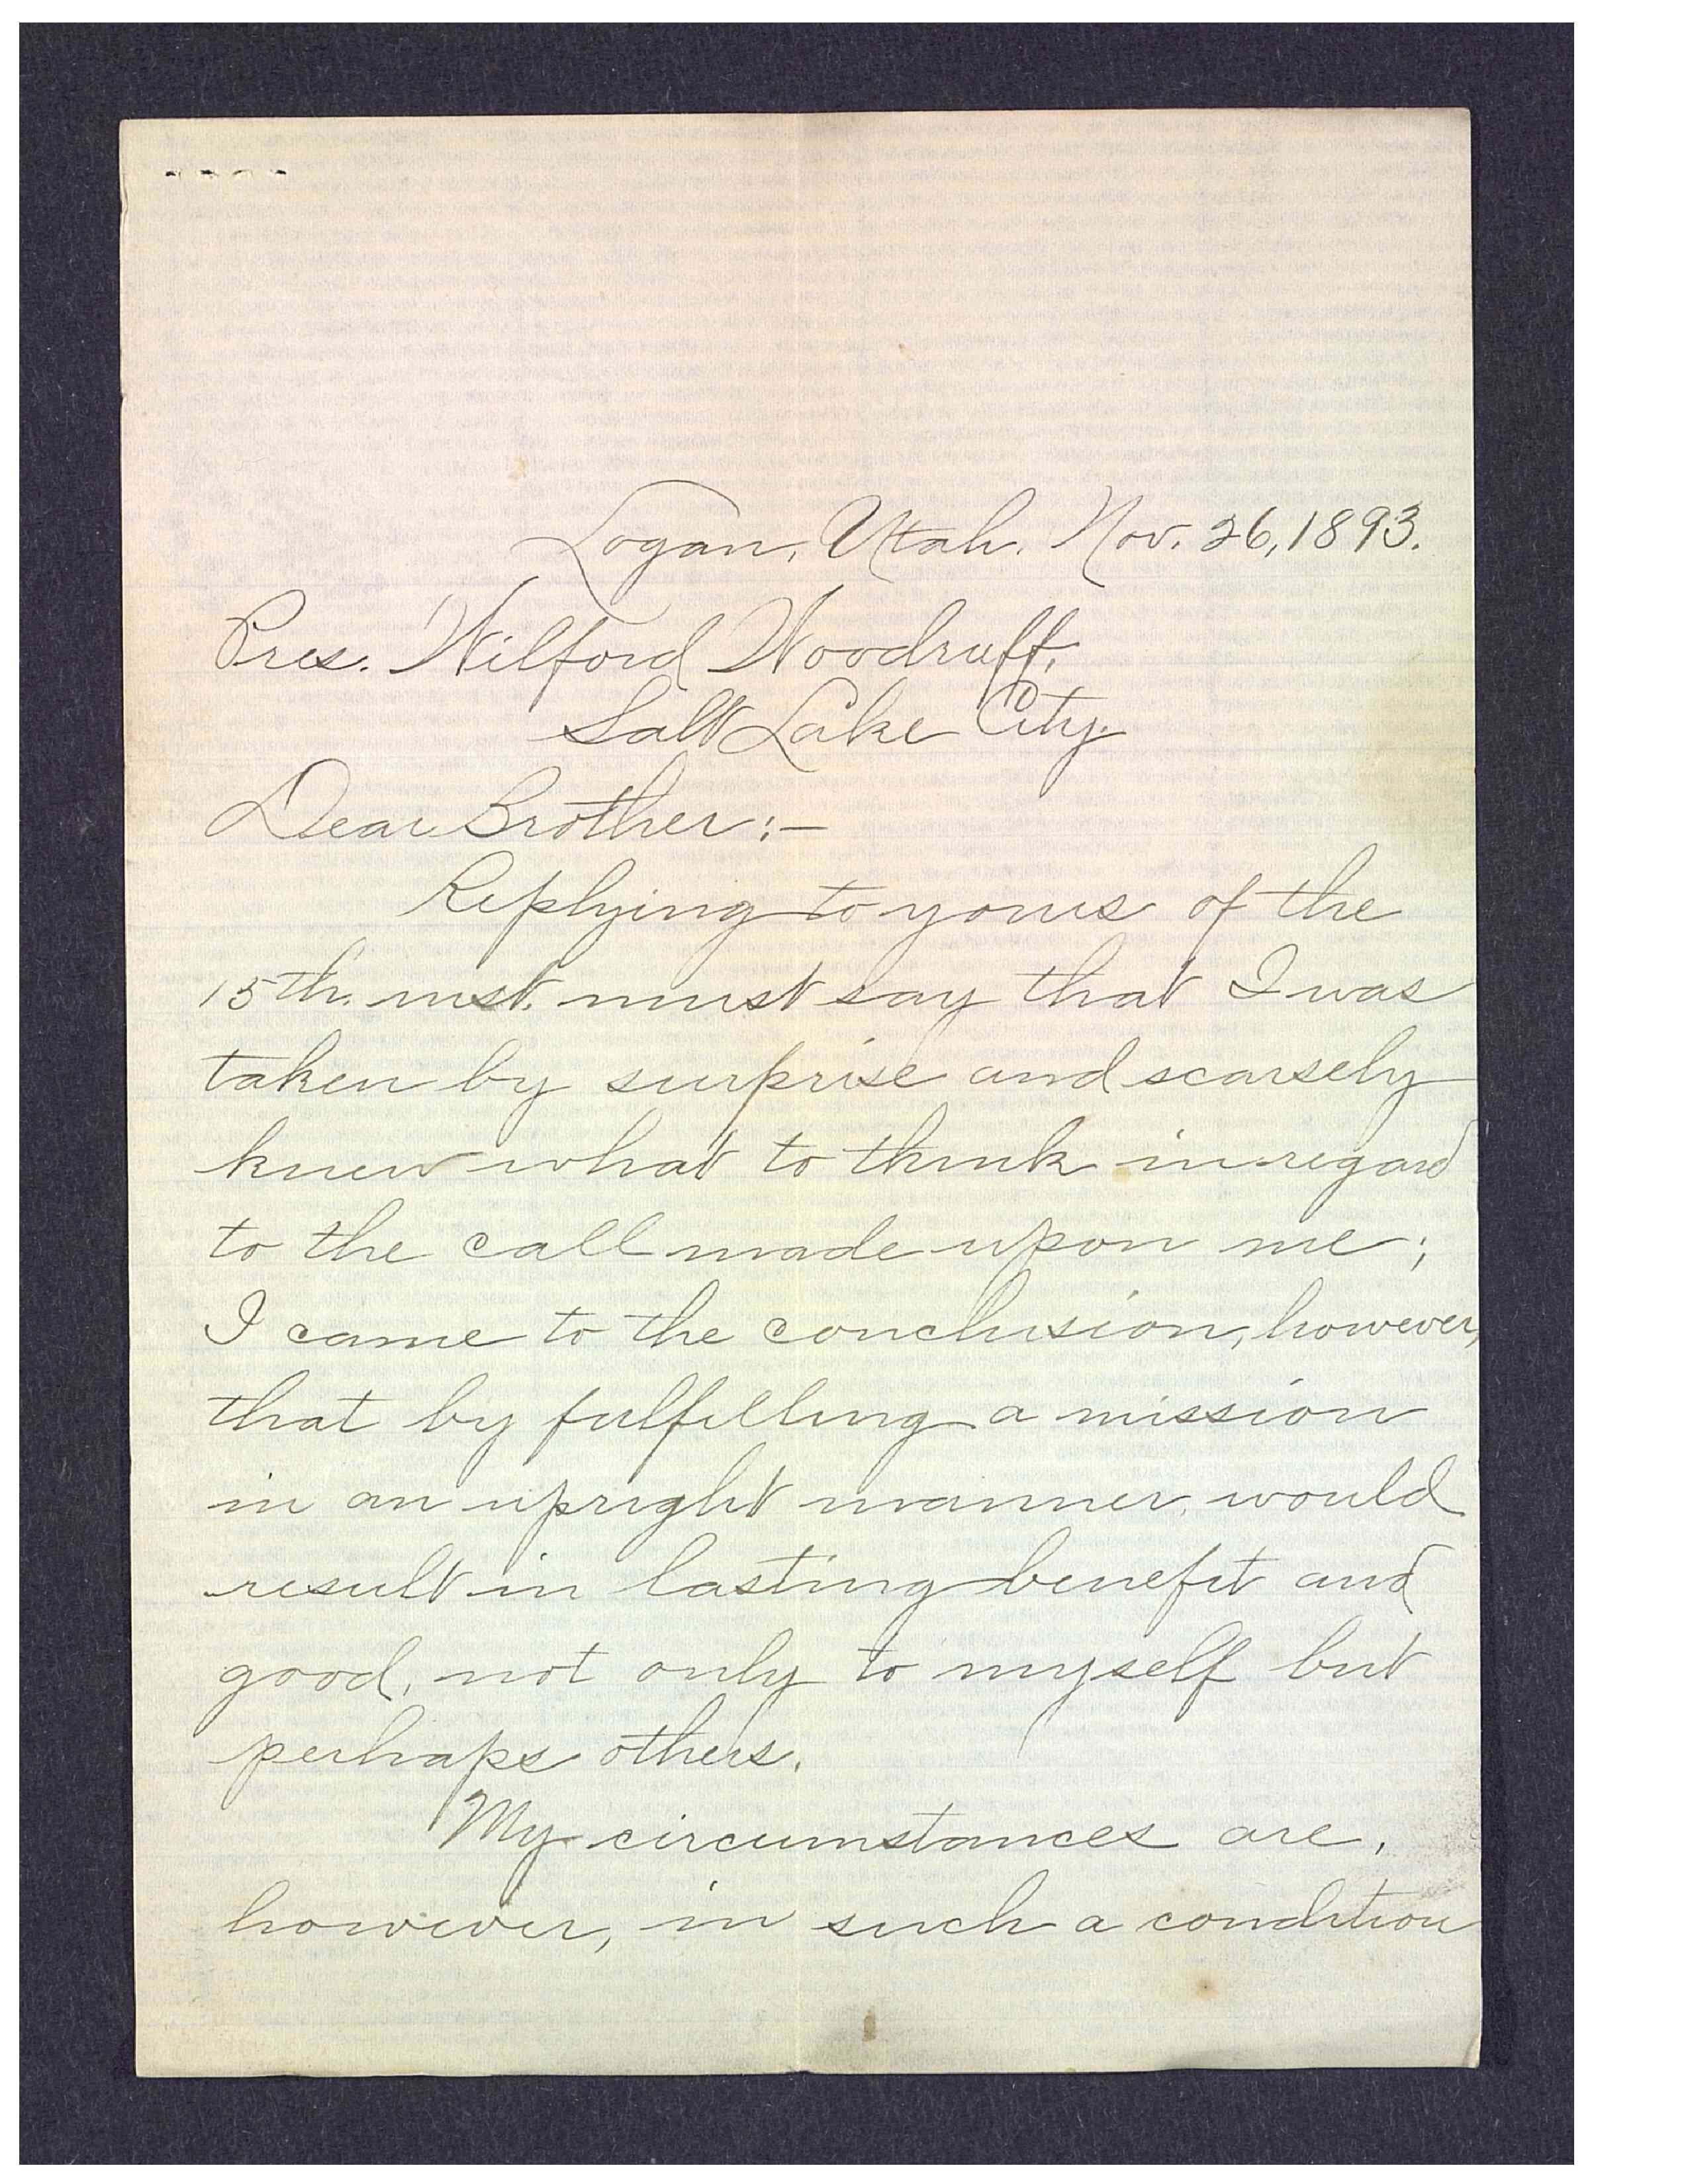 Logan, Utah. Nov. 26, 1893.
Pres. Wilford Woodruff,
Salt Lake City.
Dear Brother:—
Replying to yours of the
15th. inst. must say that I was
taken by surprise and scarsely
knew what to think in regard
to the call made upon me;
I came to the conclusion, however,
that by fulfilling a mission
in an upright manner, would
result in lasting benefit and
good, not only to myself but
perhaps others.
My circumstances are,
however, in such a condition